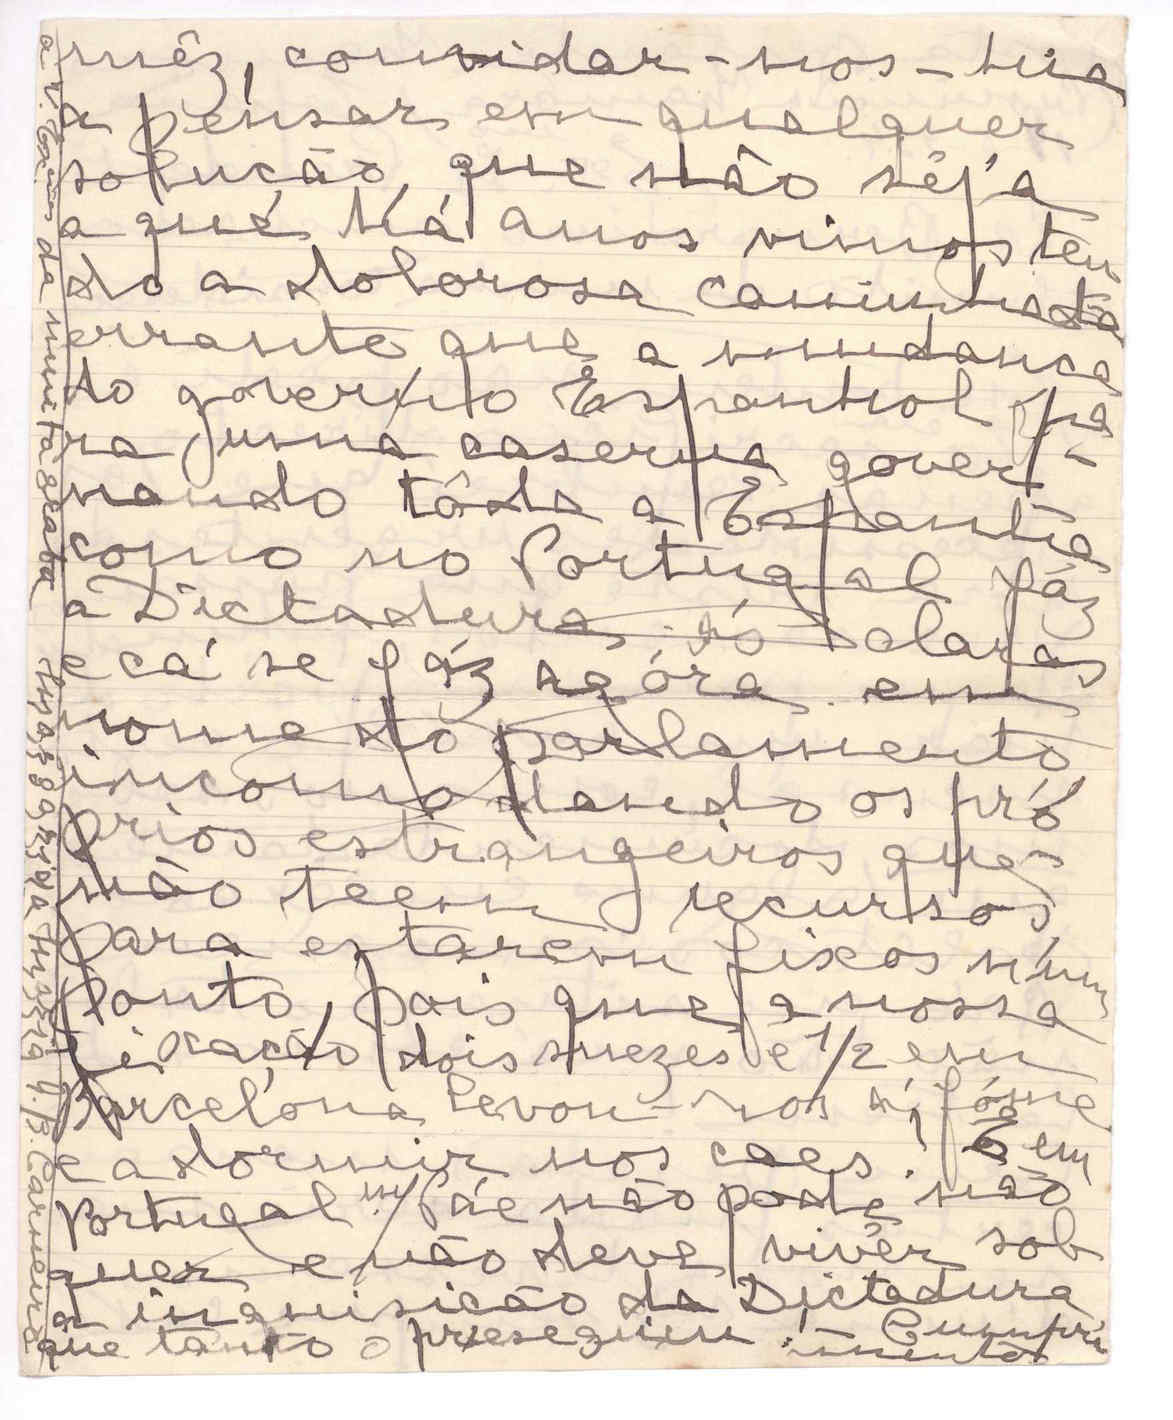 mêz, convidar-nos-hia
a pensar em qualquer
solução que não sêja
a qué há anos vimos ten
do a dolorosa caminhada
errante que a mudança
do governo Espanhol pa
ra uma caserna gover-
nando tôda a Espanha
como no Portugal fáz
a Dictadura ás claras
e cá se fáz agóra em
nome do parlamento
incomodando os pró
prios estrangeiros que
não teem recursos
para estarem fixos n'um
ponto, pois que a nossa
fixação dois mezes e 1/2 em
Barcelona levou-nos á fóme
e a dormir nos caes! E em
Portugal m/ Páe não pode não
quer e não deve viver sob
a inquisição da Dictadura
que tanto o preseguiu! - Cumpri
mentos
a V. Ex.as da muito grata